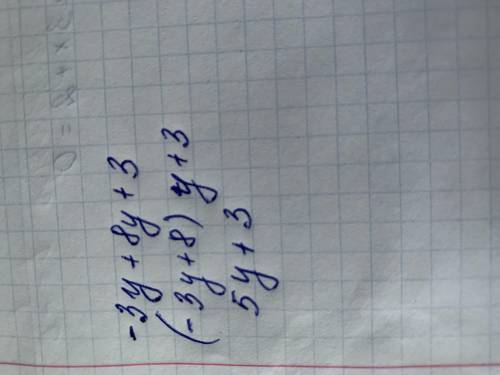 -3y + 8y + 3
(-3y + 8) y + 3
5y + 3